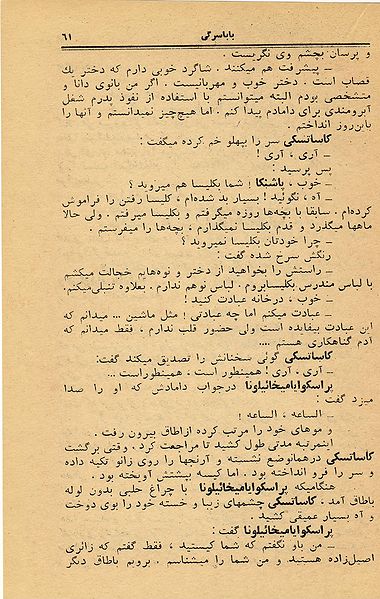 باباسرگی ۶۱
و پرسان بچشم وی نگریست .
ـ پیشرفت هم میکنند . شاگرد خوبی دارم که دختر یك
قصاب است . دختر خوب و مهربانیست . اگر من بانوی دانا و
متشخصی بودم البته میتوانستم با استفاده از نفوذ پدرم شغل
آبرومندی برای دامادم پیدا کنم . اما هیچ‌چیز نمیدانستم و آنها را
باین‌روز انداختم .
کاساتسکی سر را پهلو خم کرده میگفت :
ـ آری ، آری !
پس پرسید :
ـ خوب ، پاشنکا ! شما بکلیسا هم میروید ؟
ـ آه ، نگوئید ! بسیار بد شده‌ام ، کلیسا رفتن را فراموش
کرده‌ام . سابقا با بچه‌ها روزه میگرفتم و بکلیسا میرفتم . ولی حالا
ماهها میگذرد و قدم بکلیسا نمیگذارم ، بچه‌ها را میفرستم .
ـ چرا خودتان بکلیسا نمیروید ؟
رنگش سرخ شده گفت :
ـ راستش را بخواهید از دختر و نوه‌هایم خجالت میکشم
با لباس مندرس بکلیسابروم . لباس نوهم ندارم . بعلاوه تنبلی‌میکنم.
ـ خوب ، درخانه عبادت کنید !
ـ عبادت میکنم اما چه عبادتی ! مثل ماشین ... میدانم که
این عبادت بیفایده است ولی حضور قلب ندارم ، فقط میدانم که
آدم گناهکاری هستم ....
کاساتسکی گوئی سخنانش را تصدیق میکند گفت:
ـ آری ، آری ! همینطور است ، همینطوراست ...
پراسکوایامیخائیلونا درجواب دامادش که او را صدا
میزد گفت :
ـ الساعه ، الساعه !
و موهای خود را مرتب کرده ازاطاق بیرون رفت .
اینمرتبه مدتی طول کشید تا مراجعت کرد . وقتی برگشت
کاساتسکی درهمانوضع نشسته و آرنجها را روی زانو تکیه داده
و سر را فرو انداخته بود . اما کیسه بپشتش آویخته بود .
هنگامیکه پراسکوایامیخائیلونا با چراغ حلبی بدون لوله
باطاق آمد . کاساتسکی چشمهای زیبا و خسته خود را بوی دوخت
و آه بسیار عمیقی کشید .
پراسکوایامیخائیلونا گفت :
ـ من باو نگفتم که شما کیستید ، فقط گفتم که زائری
اصیل‌زاده هستید و من شما را میشناسم . برویم باطاق دیگر